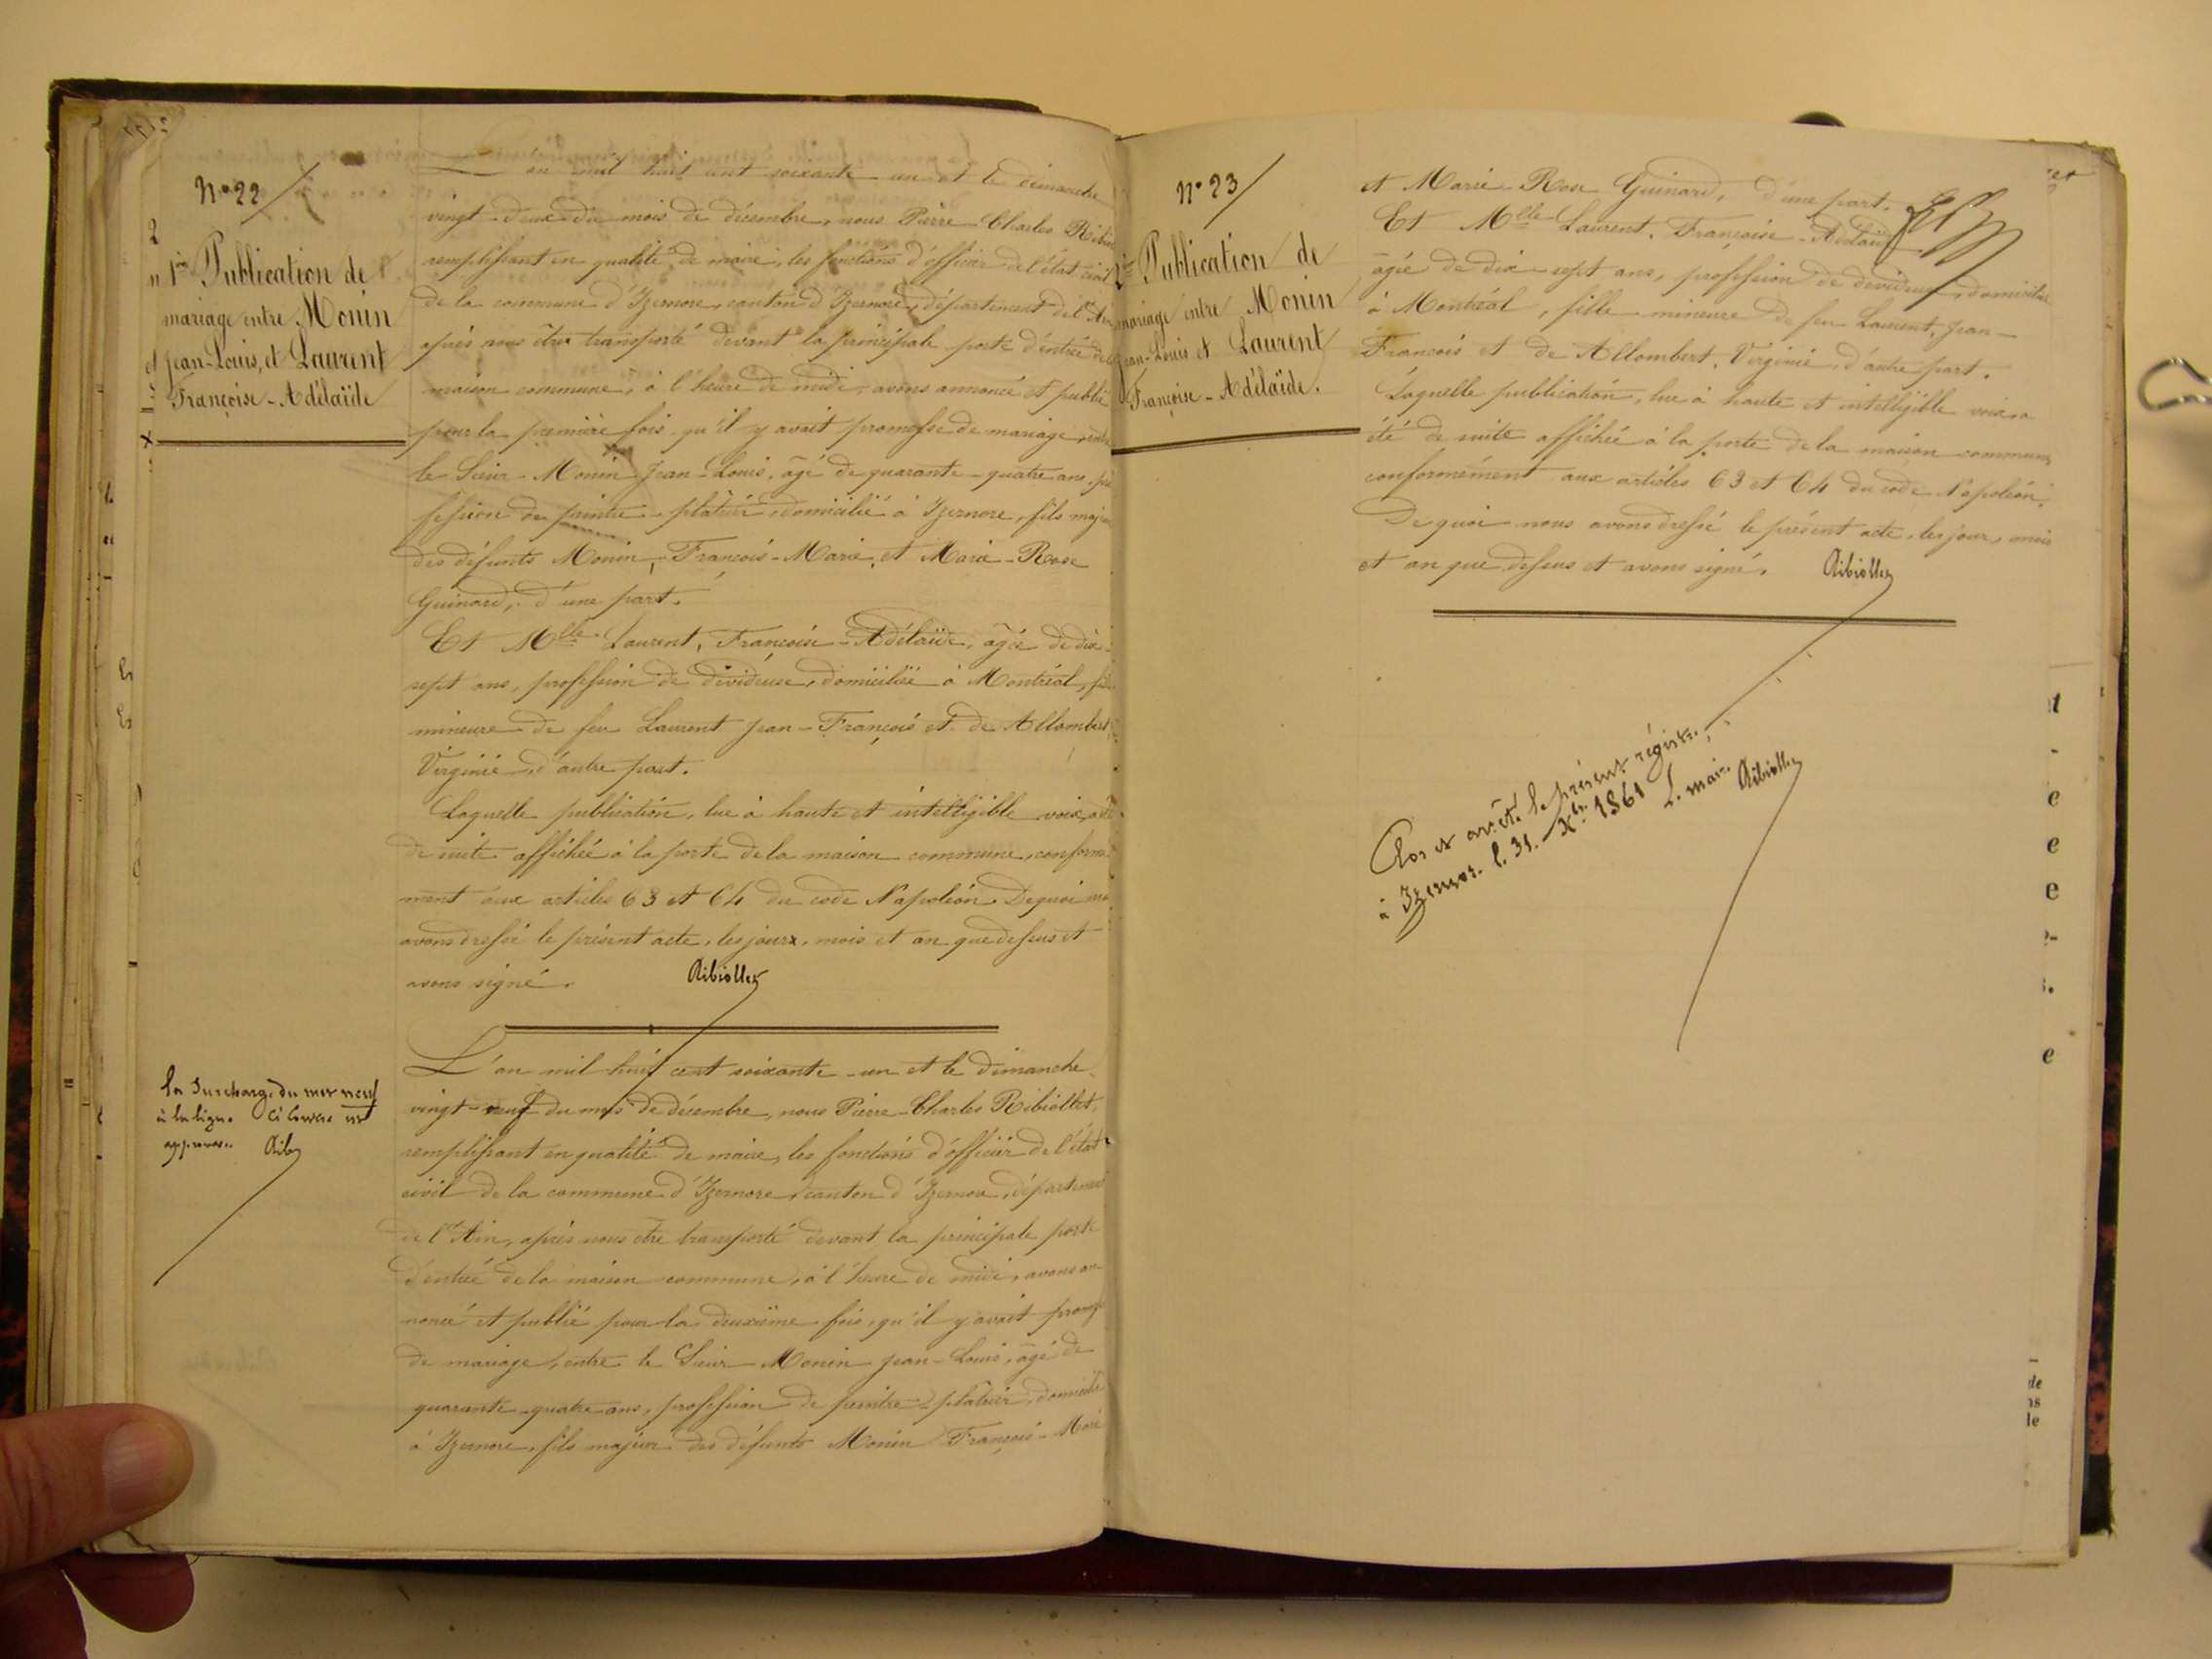 N° 22
1re Publication de
mariage entre Monin
Jean-Louis, et Laurent
Françoise-Adélaïde
an mil huit cent soixante-un et le dimanche
vingt-deux du mois de décembre, nous Pierre Charles
remplissant en qualité de maire, les fonctions d'officier de l'état civil
de la commune d'Izernore, canton d'Izernore, département de l'Ain
après nous être transporté devant la principale porte d'entrée de la
maison commune, à l'heure de midi, avons annoncé et publié
pour la première fois qu'il y avait promesse de mariage, entre
le Sieur Monin Jean-Louis, âgé de quarante-quatre ans, pro
fession de peintre-plâtrier, domicilié à Izernore, fils majeur
des défunts Monin, François-Marie, et Marie-Rose
Guinard, d'une part.
Et Mlle Laurent, Françoise-Adélaïde, âgée de dix-
sept ans, profession de dévideuse, domiciliée à Montréal, fille
mineure de feu Laurent Jean-François et de Allombert,
Virginie, d'autre part.
Laquelle publication, lue à haute et intelligible voix, a été
de suite affichée à la porte de la maison commune, conformé
ment aux articles 63 et 64 du code Napoléon. De quoi nous
avons dressé le présent acte, les jours, mois et an que dessus et
avons signé.
Ribiollet
La surcharge du mot neuf
à la ligne ci contre est
approuvée. Rib
L'an mil huit cent soixante-un et le dimanche
vingt-neuf du mois de décembre, nous Pierre-Charles Ribiollet,
remplissant en qualité de maire, les fonctions d'officier de l'état
civil de la commune d'Izernore, canton d'Izernore, département
de l'Ain, après nous être transporté devant la principale porte
d'entrée de la maison commune, à l'heure de midi, avons an
noncé et publié pour la deuxième fois, qu'il y avait promesse
de mariage, entre le Sieur Monin Jean-Louis, âgé de
quarante-quatre ans, profession de peintre-plâtrier, domicilié
à Izernore, fils majeur des défunts Monin François-Marie
N° 23
2me Publication de
mariage entre Monin
Jean-Louis et Laurent
Françoise-Adélaïde.
et Marie-Rose Guinard, d'une part.
Et Mlle Laurent, Françoise-Adélaïde
âgée de dix-sept ans, profession de dévideuse, domiciliée
à Montréal, fille mineure de feu Laurent, Jean-
François et de Allombert, Virginie, d'autre part.
Laquelle publication, lue à haute et intelligible voix, a
été de suite affichée à la porte de la maison commune,
conformément aux articles 63 et 64 du code Napoléon.
De quoi nous avons dressé le présent acte, les jour, mois
et an que dessus et avons signé.
Ribiollet
Clos et arrêté le présent régistre
à Izernore le 31 Xbre 1861
Le maire Ribiollet